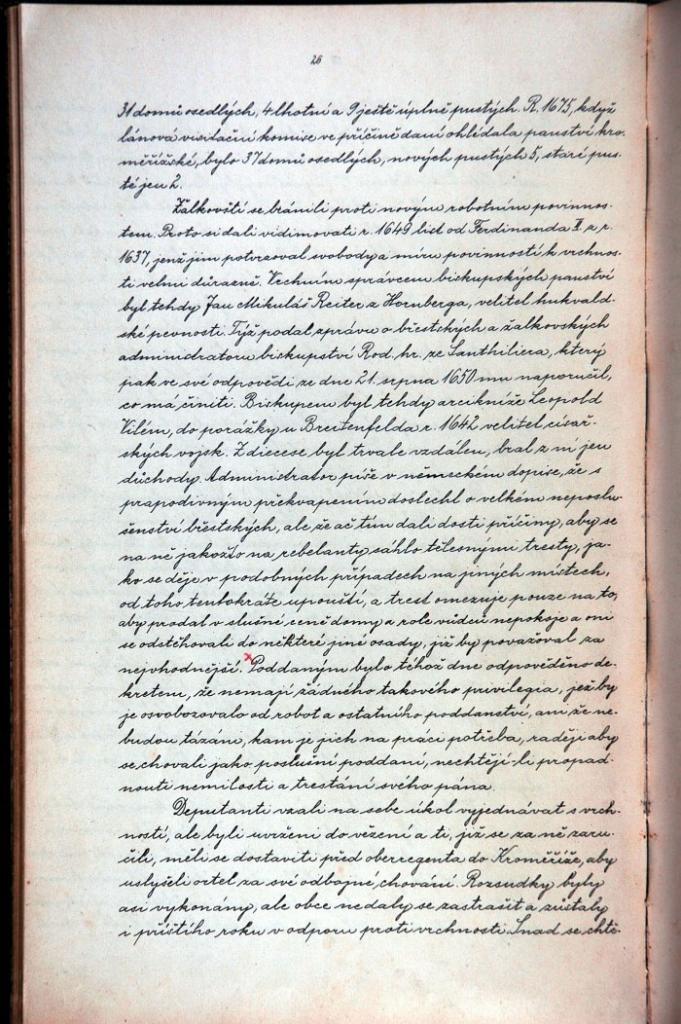 26
31 domů osedlých, 4 lhotní a 9 ještě úplně pustých. R. 1675, když
lánová visitační komise ve příčině daní ohlédala panství kro-
měřížské, bylo 37 domů osedlých, nových pustých 5, staré pus-
té jen 2.
Žalkovští se bránili proti novým robotním povinnos-
tem. Proto si dali vidimovati r. 1649 list od Ferdinanda II z r.
1637, jenž jim potvrzoval svobody a míru povinností k vrchnos-
ti velmi důrazně. Vrchním správcem biskupských panství
byl tehdy Jan Mikuláš Reiter z Hornberga, velitel hukvald-
ské pevnosti. Týž podal zprávu o břestských a žalkovských
administratoru biskupství Rod. hr. ze Santhiliera, který
pak ve své odpovědi ze dne 21. srpna 1650 mu naporučil,
co má činiti. Biskupem byl tehdy arcikníže Leopold
Vilém, do porážky u Breitenfelda r. 1642 velitel císař-
ských vojsk. Z diecese byl trvale vzdálen, bral z ní jen
důchody. Administrator píše v německém dopise, že s
prapodivným překvapením doslechl o velkém neposlu-
šenství břestských, ale že ač tím dali dosti příčiny, aby se
na ně jakožto na rebelanty sáhlo tělesnými tresty, ja-
ko se děje v podobných případech na jiných místech,
od toho tentokráte upouští, a trest omezuje pouze na to,
aby prodal v slušné ceně domy a role vůdců nepokoje a oni
se odstěhovali do některé jiné osady, již by považoval za
nejvhodnější. x Poddaným bylo téhož dne odpověděno de-
kretem, že nemají žádného takového privilegia, jež by
je osvobozovalo od robot a ostatního poddanství, ani že ne-
budou tázáni, kam je jich na práci potřeba, raději aby
se chovali jako poslušní poddaní, nechtějí-li propad-
nouti nemilosti a trestání svého pána.
Deputanti vzali na sebe úkol vyjednávat s vrch-
ností, ale byli uvrženi do vězení a ti, již se za ně zaru-
čili, měli se dostaviti před oberregenta do Kroměříže, aby
uslyšeli ortel za své odbojné chování. Rozsudky byly
asi vykonány, ale obce nedaly se zastrašit a zůstaly
i příštího roku v odporu proti vrchnosti. Snad se chtě-